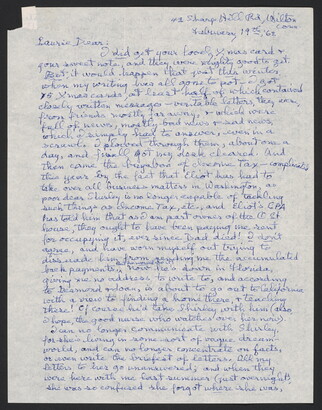 42 Sharp Hill Rd, Wilton
Conn.
February 19th, '62
Laurie Dear:
I did get your lovely Xmas card &
your sweet note, and they were mighty good to get.
But, it would happen that just this winter
when my writing has all gone to pot - I got
75 Xmas cards, at least half of which contained
closely written messages - veritable letters they were,
from friends mostly far away, & which were
full of news, mostly bad news or sad news,
which I simply had to answer, even in a
scrawl. I plowed through them, about one a
day, and finally got my desk cleared. And
then came the bugaboo of Income Tax - complicated
this year by the fact that Eliot has had to
take over all business matters in Washington, as
poor dear Shirley is no longer capable of tackling
such things as Income Tax, etc. and Eliot's CPA
has told him that as I am part owner of the
house, they ought to have been paying me rent
for occupying it, ever since Dad died! I don't
agree, and have worn myself out trying to
dissuade him from sending me the accumulated
back payments. Now he's down in Florida,
giving me no address to write to, and according
to Desmond & Joan, is about to go out to California
with a view to finding a home there, & teaching
there! Of course he'd take Shirley with him (also
I hope, the good nurse who watches over her now).
I can no longer communicate with Shirley,
for she's living in some sort of vague dream-
world, and can no longer concentrate on facts,
or even write the briefest of letters. All my
letters to her go unanswered; and when they
were here with me last summer (just overnight),
she was so confused she forgot where she was,